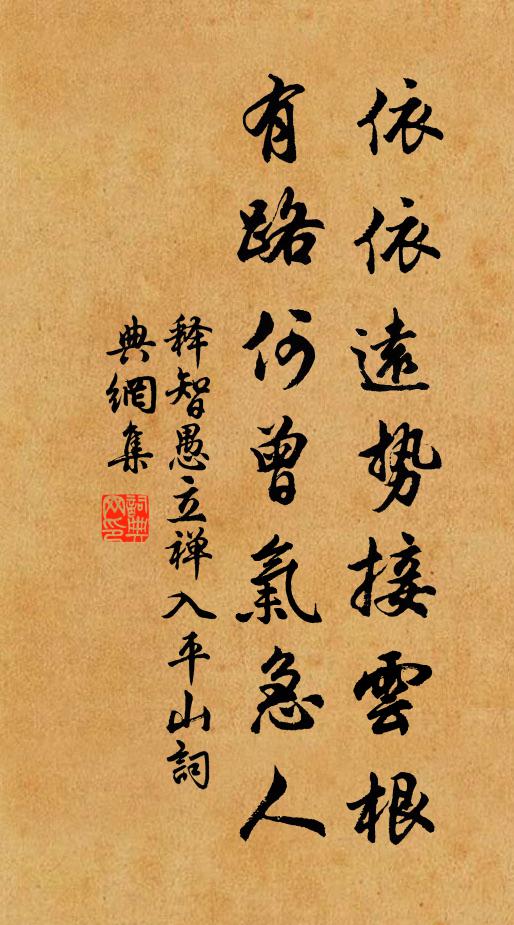 依依遠势接雲根
有路何曾氣急人
释智愚立禅入平山詞
典網集
詞典
网印